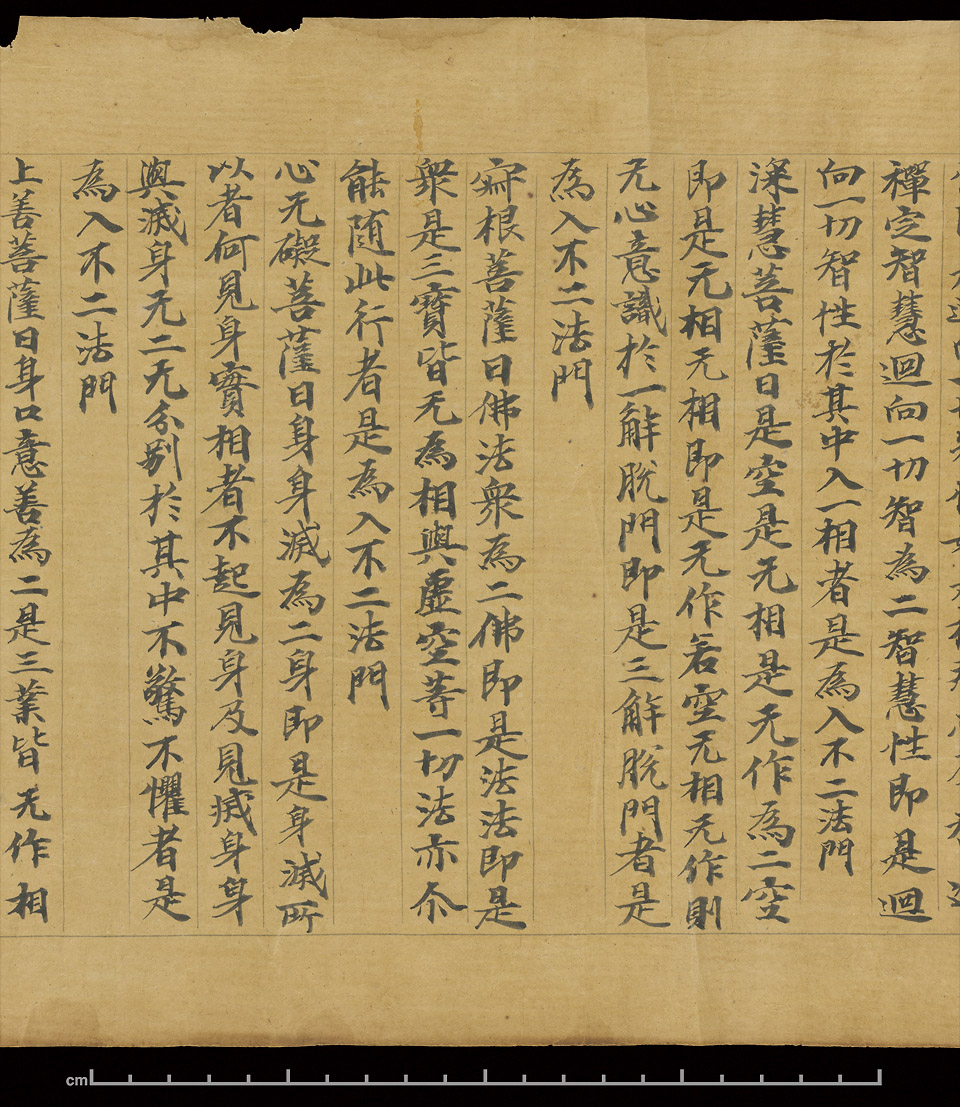 禪定智慧迴向一切智為二智慧性即是迴
向一切智性於其中入一相者是為入不二法門
深慧菩薩曰是空是无相是无作為二空
即是无相无相即是无作若空无相无作則
无心意識於一解脫門即是三解脫門者是
為入不二法門
寂根菩薩曰佛法眾為二佛即是法法即是
眾是三寶皆无為相與虛空等一切法亦尒
能随此行者是為入不二法門
心无礙菩薩曰身身滅為二身即是身滅所
以者何見身實相者不起見身及見滅身身
與滅身无二无分別於其中不驚不懼者是
為入不二法門
上善菩薩曰身口意善為二是三業皆无作相